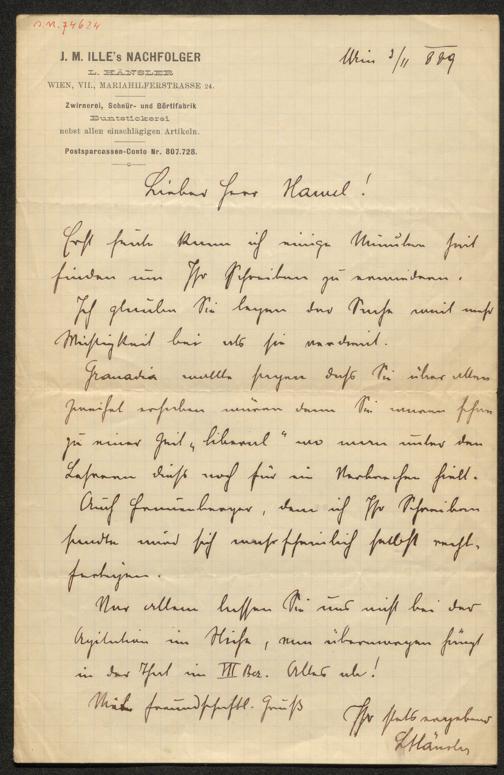 J. N. 74624
J. M. ILLE's NACHFOLGER
L. HÄNSLER
WIEN, VII., MARIAHILFERSTRASSE 24.
Zwirnerei, Schnür- und Börtlfabrik
Buntstickerei
nebst allen einschlägigen Artikeln.
Postsparcassen-Conto Nr. 807.728.
Wien 3/11 889
Lieber Herr Hawel!
Erst heute kann ich einige Minuten Zeit
finden um Ihr Schreiben zu erwiedern.
Ich glaube Sie legen der Sache weit mehr
Wichtigkeit bei als sie verdient.
Granadia wollte sagen daß Sie über allen
Zweifel erhaben wären denn Sie waren schon
zu einer Zeit „liberal" wo man unter den
Lehrern dieß noch für ein Verbrechen hielt.
Auch, dem ich Ihr Schreiben
sandte wird sich wahrscheinlich selbst recht-
fertigen.
Vor allem lassen Sie uns nicht bei der
Agitation im Stiche, von hängt
in der That im VII Bez. Alles ab!
Mit freundschaftl. Gruß
Ihr stets ergebener
LHänsler